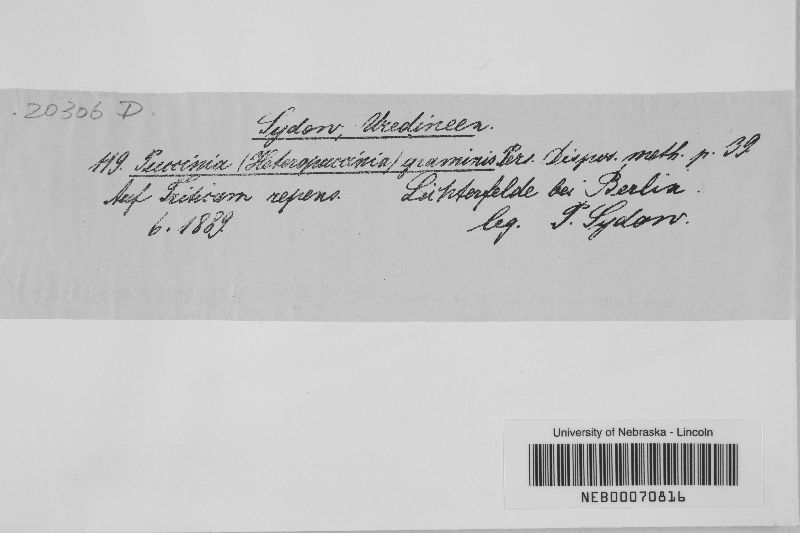 20306 D.
Sydow, Uredineen.
119. Puccinia (Heteropuccinia) graminis Pers. Dispos. meth. p. 39
Auf Triticum repens. Lichterfelde bei Berlin.
6. 1889. leg. P. Sydow.
University of Nebraska - Lincoln
NEB00070816